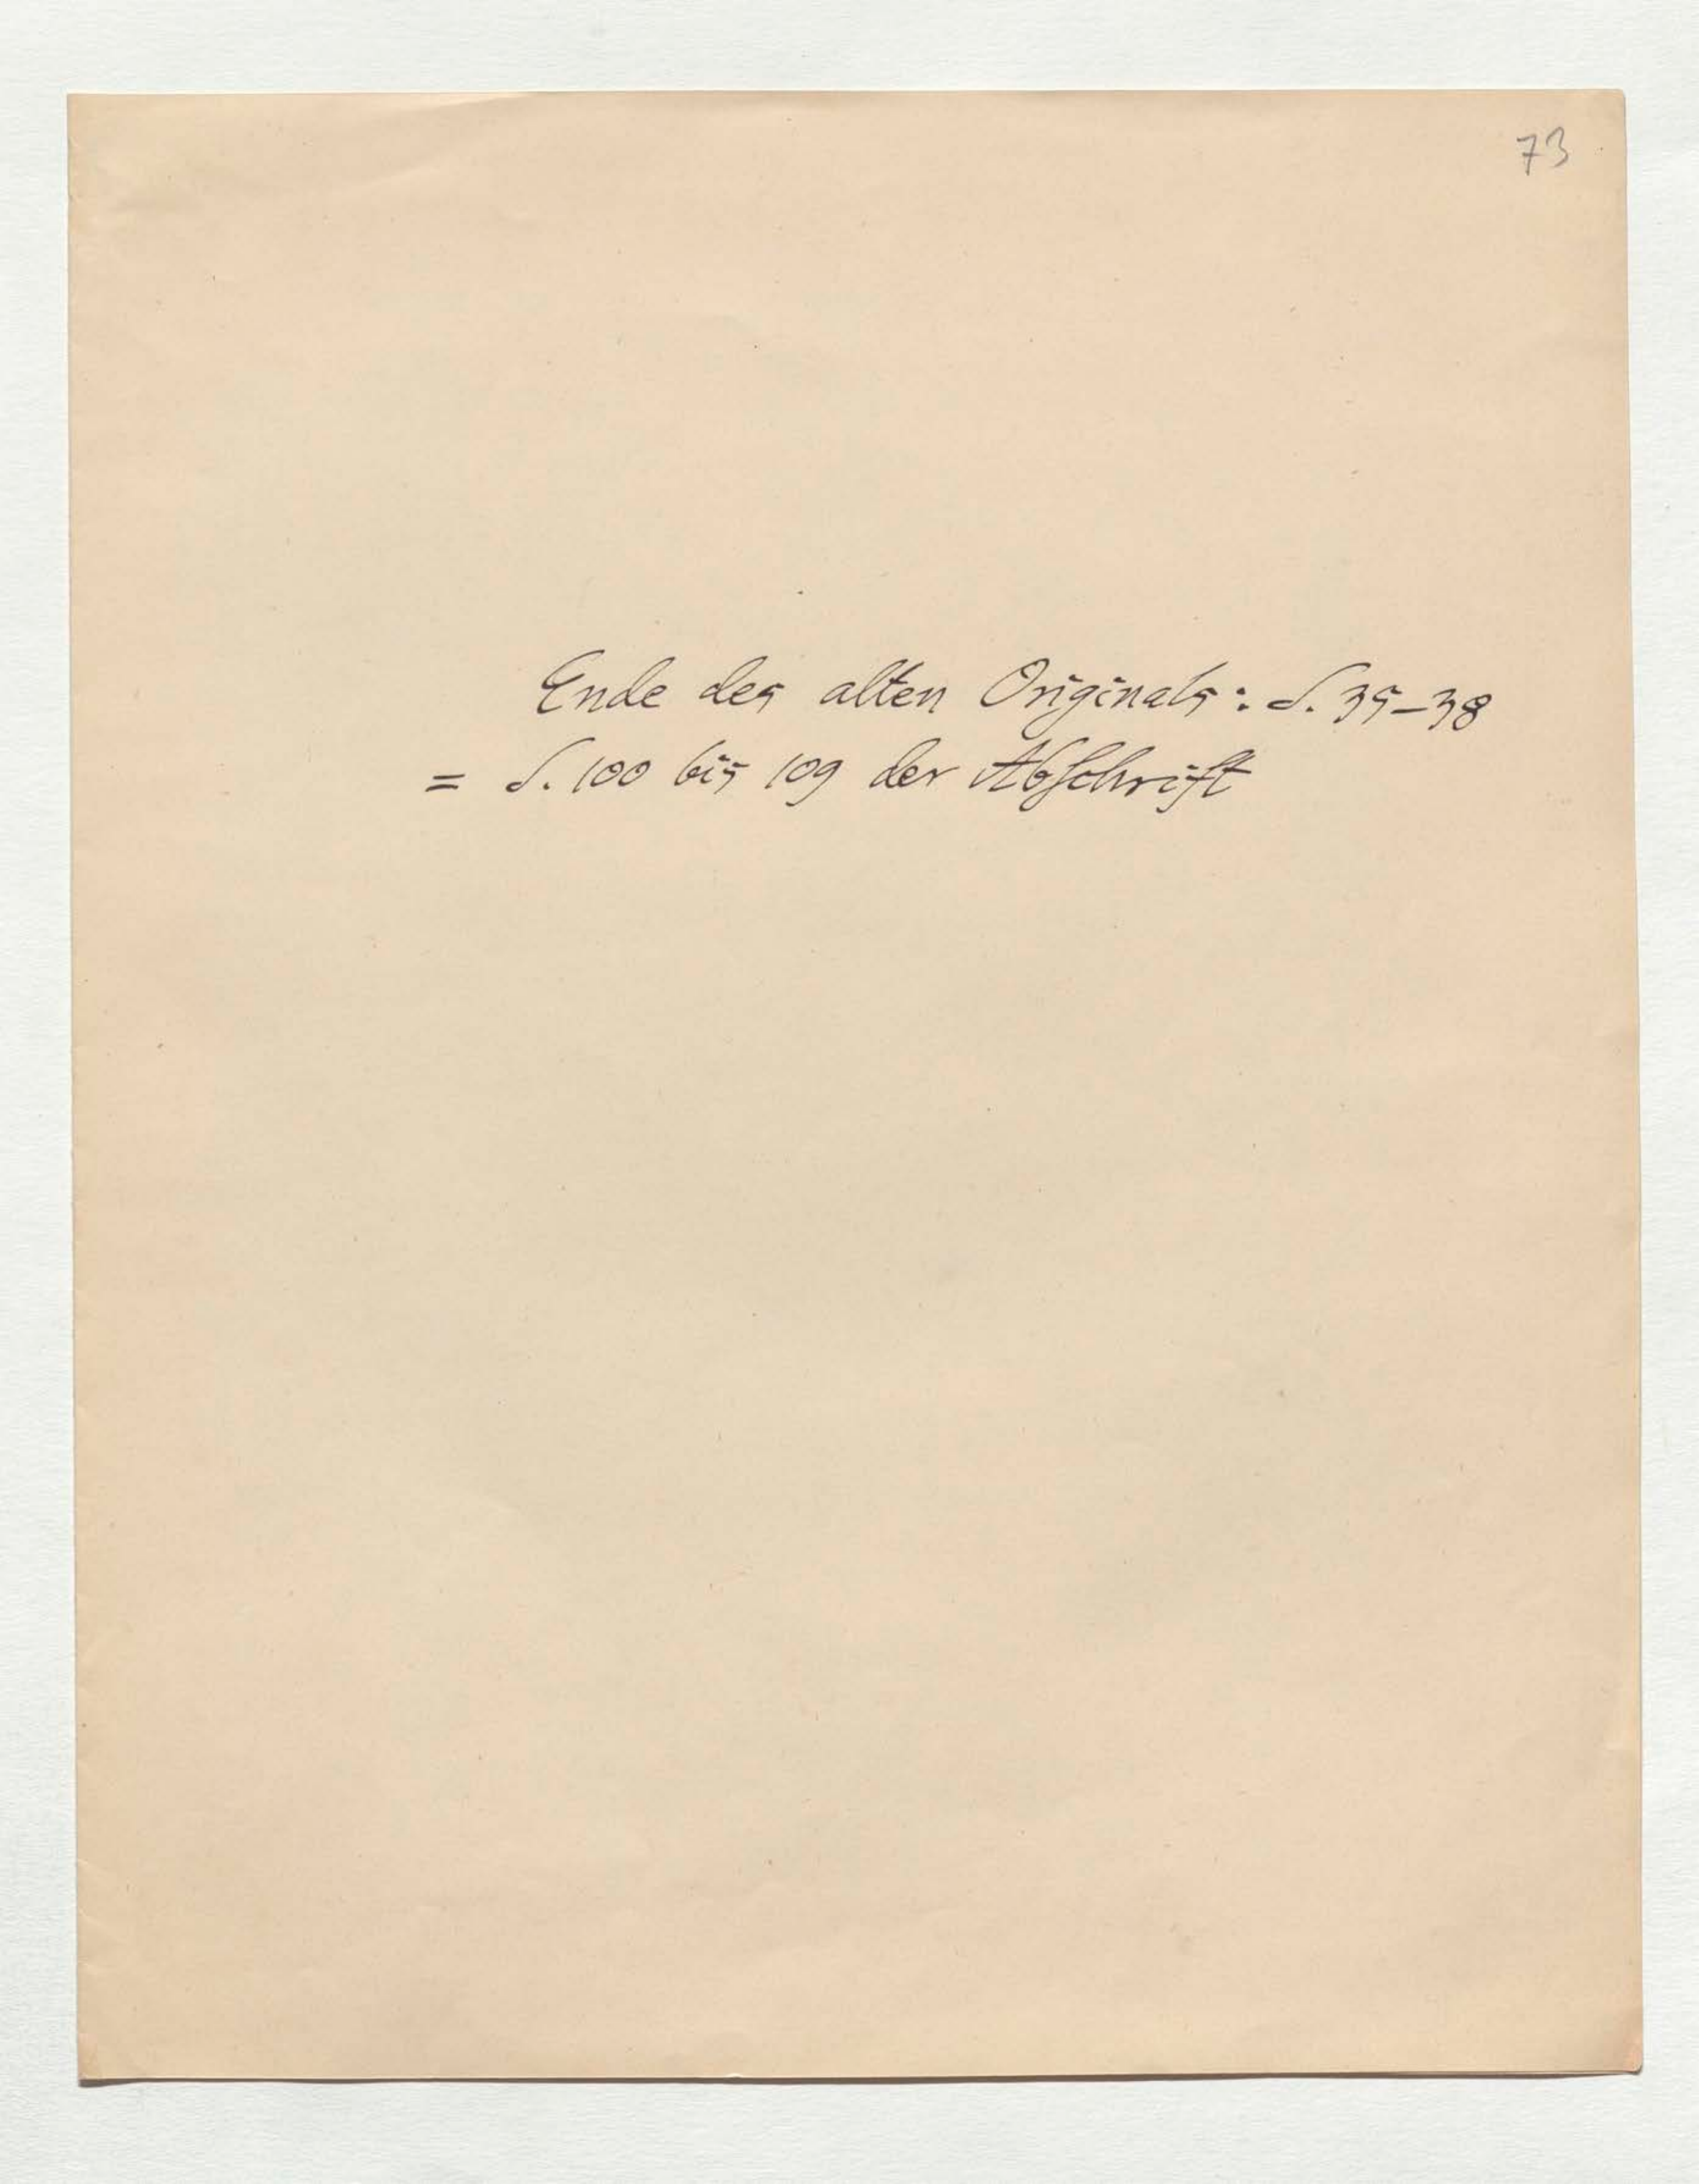 73
Ende des alten Originals: S. 35–38
= S. 100 bis 109 der Abschrift